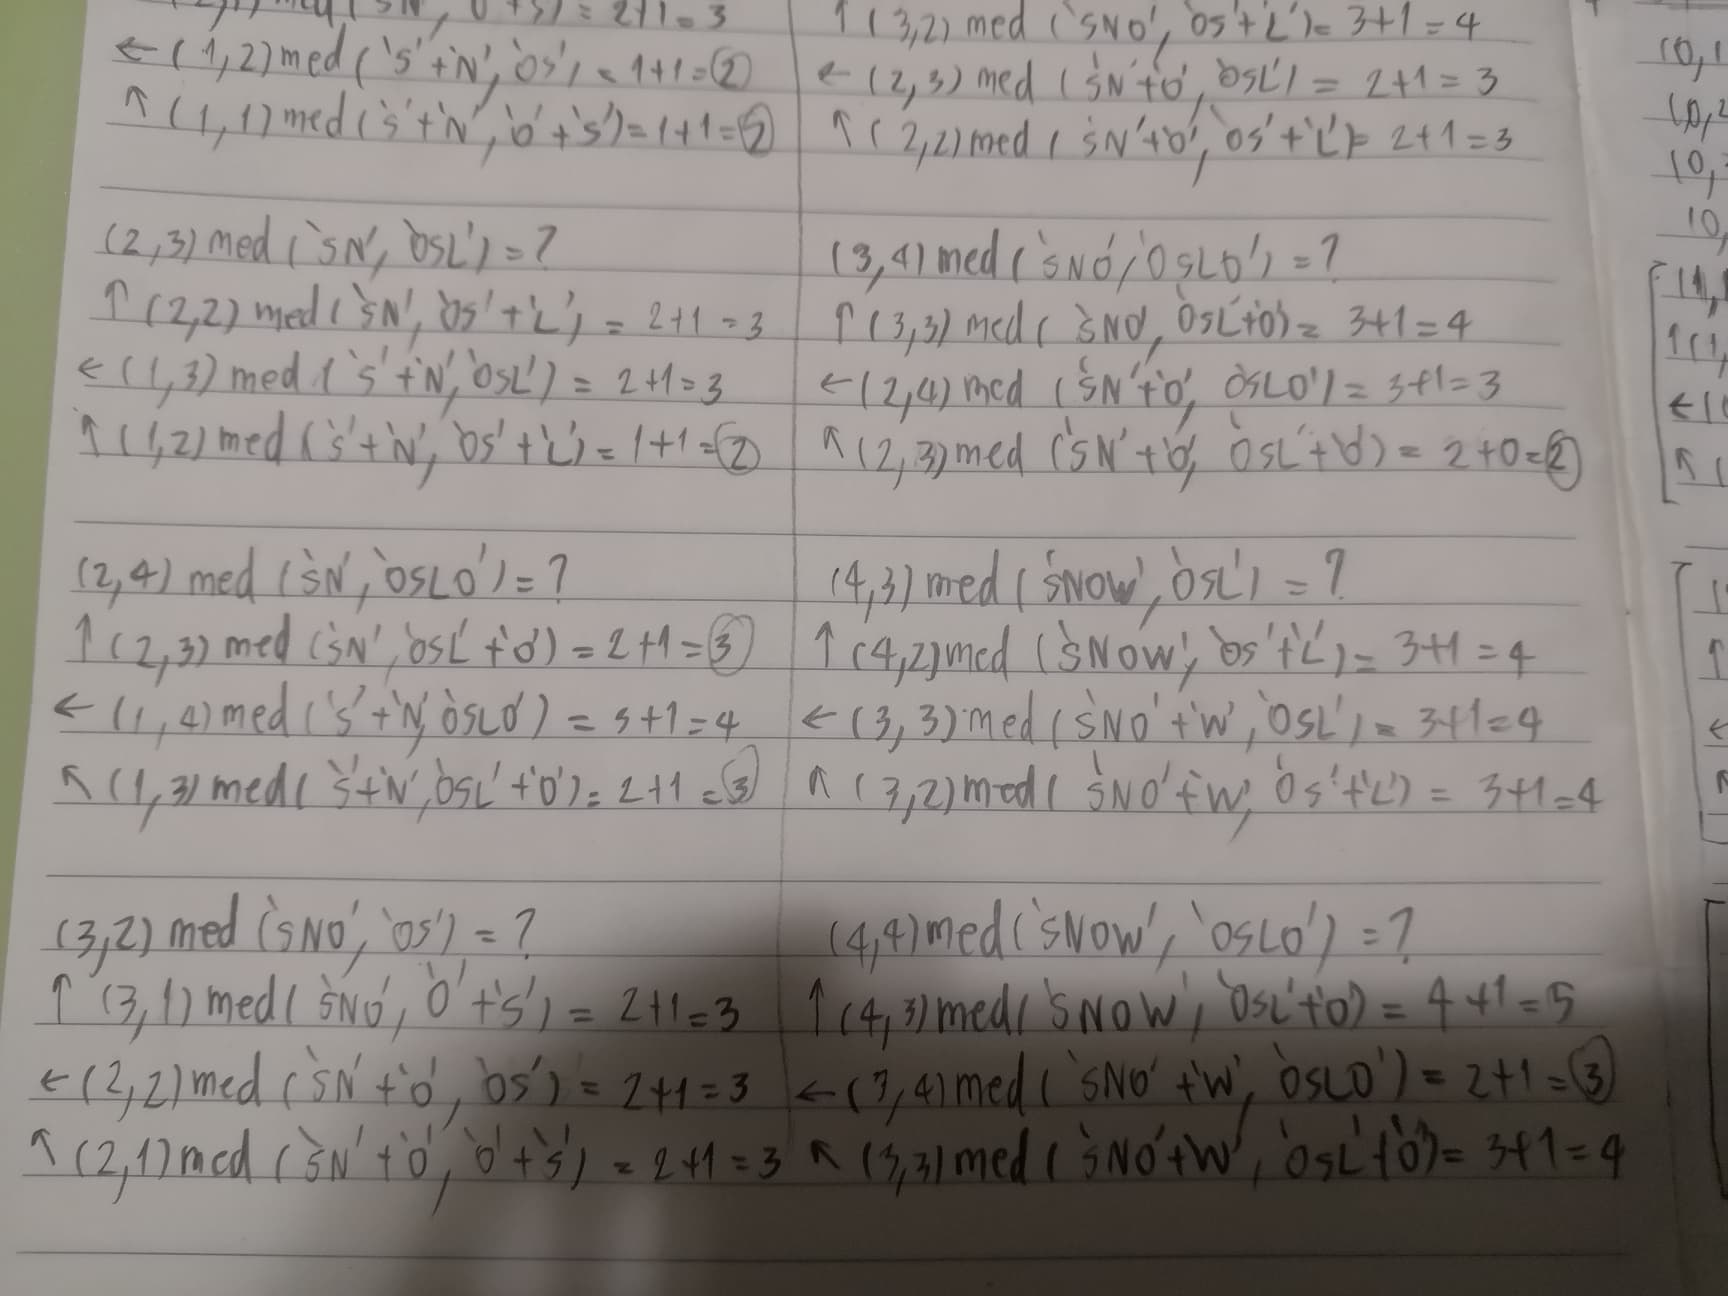 = 2+1=3
← (1,2) med ('S'+'N', 'OS') = 1+1=2
↖ (1,1) med ('S'+'N', 'O'+'S') = 1+1=2
(2,3) med ('SN', 'OSL') = ?
↑ (2,2) med ('SN', 'OS'+'L') = 2+1=3
← (1,3) med ('S'+'N', 'OSL') = 2+1=3
↖ (1,2) med ('S'+'N', 'OS'+'L') = 1+1=2
(2,4) med ('SN', 'OSLO') = ?
↑ (2,3) med ('SN', 'OSL'+'O') = 2+1=3
← (1,4) med ('S'+'N', 'OSLO') = 3+1=4
↖ (1,3) med ('S'+'N', 'OSL'+'O') = 2+1=3
(3,2) med ('SNO', 'OS') = ?
↑ (3,1) med ('SNO', 'O'+'S') = 2+1=3
← (2,2) med ('SN'+'O', 'OS') = 2+1=3
↖ (2,1) med ('SN'+'O', 'O'+'S') = 2+1=3
↑ (3,2) med ('SNO', 'OS'+'L') = 3+1=4
← (2,3) med ('SN'+'O', 'OSL') = 2+1=3
↖ (2,2) med ('SN'+'O', 'OS'+'L') = 2+1=3
(3,4) med ('SNO', 'OSLO') = ?
↑ (3,3) med ('SNO', 'OSL'+'O') = 3+1=4
← (2,4) med ('SN'+'O', 'OSLO') = 3+1=3
↖ (2,3) med ('SN'+'O', 'OSL'+'O') = 2+0=2
(4,3) med ('SNOW', 'OSL') = ?
↑ (4,2) med ('SNOW', 'OS'+'L') = 3+1=4
← (3,3) med ('SNO'+'W', 'OSL') = 3+1=4
↖ (3,2) med ('SNO'+'W', 'OS'+'L') = 3+1=4
(4,4) med ('SNOW', 'OSLO') = ?
↑ (4,3) med ('SNOW', 'OSL'+'O') = 4+1=5
← (3,4) med ('SNO'+'W', 'OSLO') = 2+1=3
↖ (3,3) med ('SNO'+'W', 'OSL'+'O') = 3+1=4